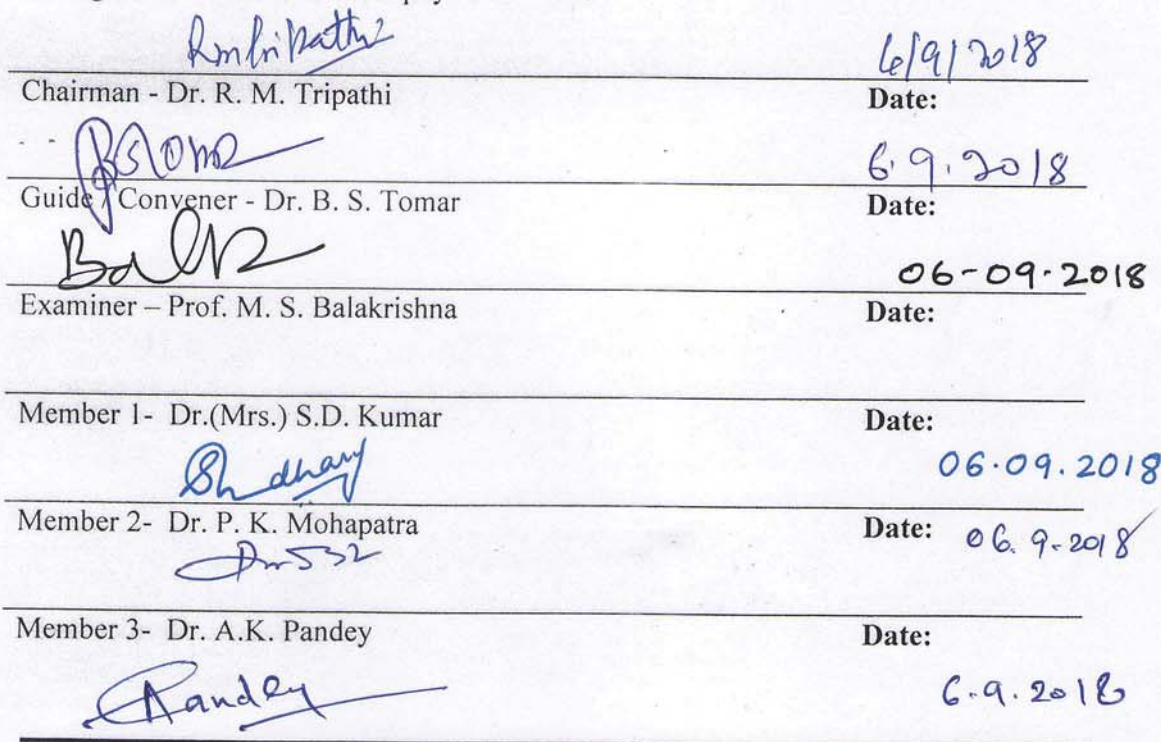 6/9/2018
Chairman - Dr. R. M. Tripathi Date:
6.9.2018
Guide / Convener - Dr. B. S. Tomar Date:
06-09-2018
Examiner – Prof. M. S. Balakrishna Date:
Member 1- Dr.(Mrs.) S.D. Kumar Date:
06.09.2018
Member 2- Dr. P. K. Mohapatra Date: 06.9.2018
Member 3- Dr. A.K. Pandey Date:
Pandey 6.9.2018